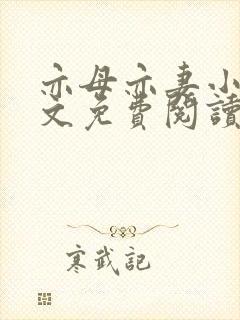 亦母亦妻小
文免費閱讀
寒武記